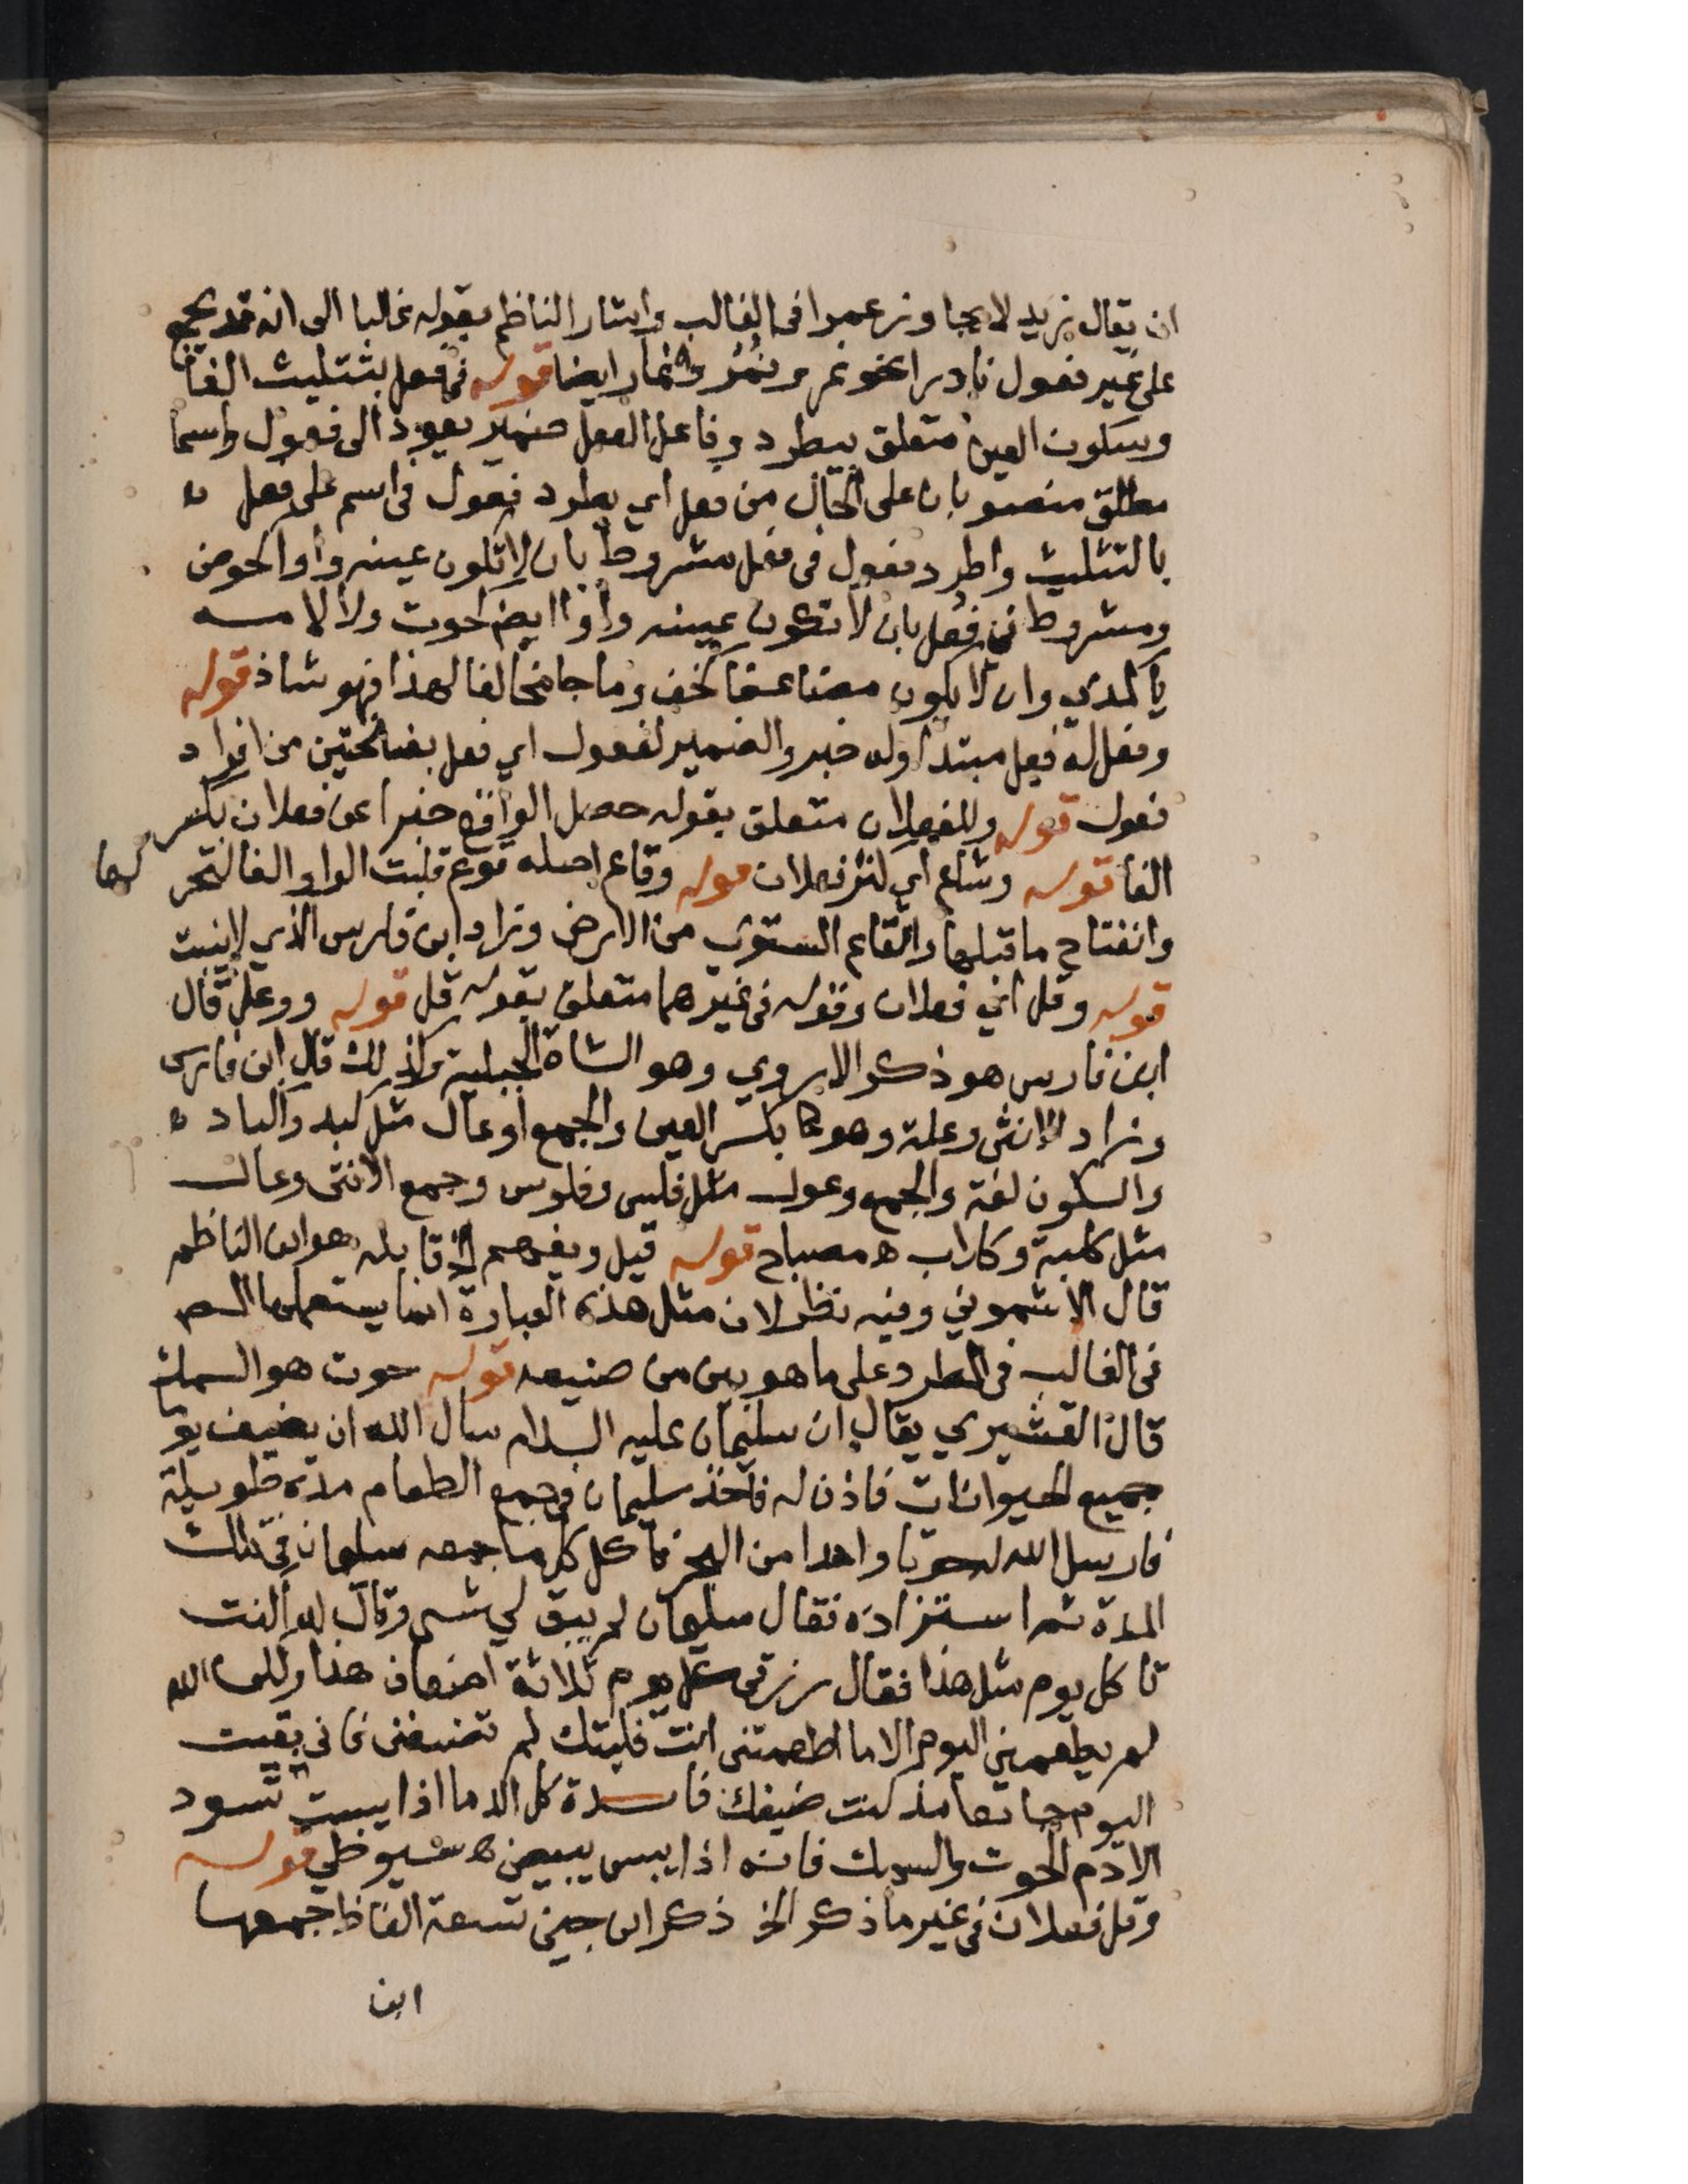 ان يقال زيد لا يجاوز عمرا في الغالب واشار الناظم بقوله غالبا الى انه قد يجمع
على غير فعول نادرا نحو نمر ونُمُر وانمار ايضا قوله في فعل بتثليث الفا
وسكون العين متعلق بيطرد وفاعل الفعل ضمير يعود الى فعول واسما
مطلق منصوبان على الحال من فعل اي يطرد فعول في اسم على فعل
بالتثليث واطرد فعول في فعل مشروط بان لا تكون عينه واوا كحوض
ومشروط في فُعل بان لا تكون عينه واوا ايضا كحوت ولا لامه
يا كمدي وان لا يكون مضاعفا كخف وما جا مخالفا لهذا فهو شاذ قوله
وفعل له فعل مبتدا وله خبر والضمير لفعول اي فعل بفتحتين من افراد
فعول قوله وللفعلان متعلق بقوله حصل الواقع خبرا عن فعلان بكسر
الفا قوله وشاع اي كثر فعلان قوله وقاع اصله قوع قلبت الواو الفا لتحر كها
وانفتاح ما قبلها والقاع المستوي من الارض وزاد ابن فارس الذي لا ينبت
قوله وقل اي فعلان وقوله في غيرهما متعلق بقوله قل قوله ووعل قال
ابن فارس هو ذكر الاروي وهو الشاة الجبلية وكذلك قال ابن فارس
وزاد الانثى وعلة وهو كا بكسر العين والجمع اوعال مثل كبد واكباد
والسكون لغة والجمع وعول مثل فلس وفلوس وجمع الانثى وعال
مثل كلبة وكلاب ه مصباح قوله قيل ويفهم الخ قايله هو ابن الناظم
قال الاشموني وفيه نظر لان مثل هذه العبارة انما يستعملها المص
في الغالب في المطرد على ما هو بين من صنيعه قوله حوت هو السمك
قال القشيري يقال ان سليمان عليه السلام سال الله ان يضيف يو
جميع الحيوانات فاذن له فاخذ سليمان في جمع الطعام مدة طويلة
فارسل الله له حوتا واحدا من البحر فاكل كل ما جمعه سليمان في تلك
المدة ثم استزاده فقال سليمان لم يبق لي شي وقال له اانت
تاكل يوم مثل هذا فقال رزقي كل يوم ثلاثة اضعاف هذا ولكن الله
لم يطعمني اليوم الا ما اطعمتني انت فليتك لم تضيفني فاني بقيت
اليوم جايعا مذ كنت ضيفك فايدة كل الدما اذا يبست تسود
الا دم الحوت والسمك فانه اذا يبس يبيض ه سيوطي قوله
وقل فعلان في غير ما ذكر الخ ذكر ابن جني تسعة الفاظ جمعها
ابن